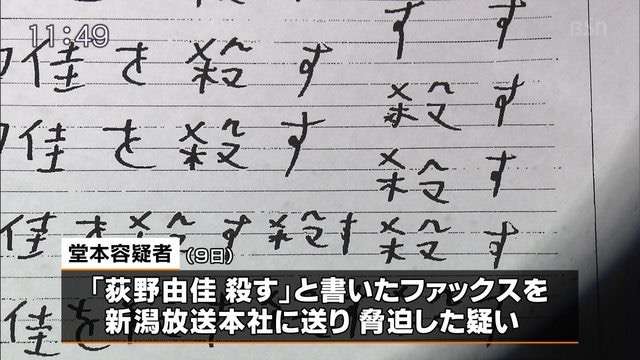 11:49
BSN
す す
佳を殺す 殺 す
佳を殺す 殺 す
佳を殺す殺す殺 す
佳を殺す
堂本容疑者
(9日)
「荻野由佳 殺す」と書いたファックスを
新潟放送本社に送り 脅迫した疑い